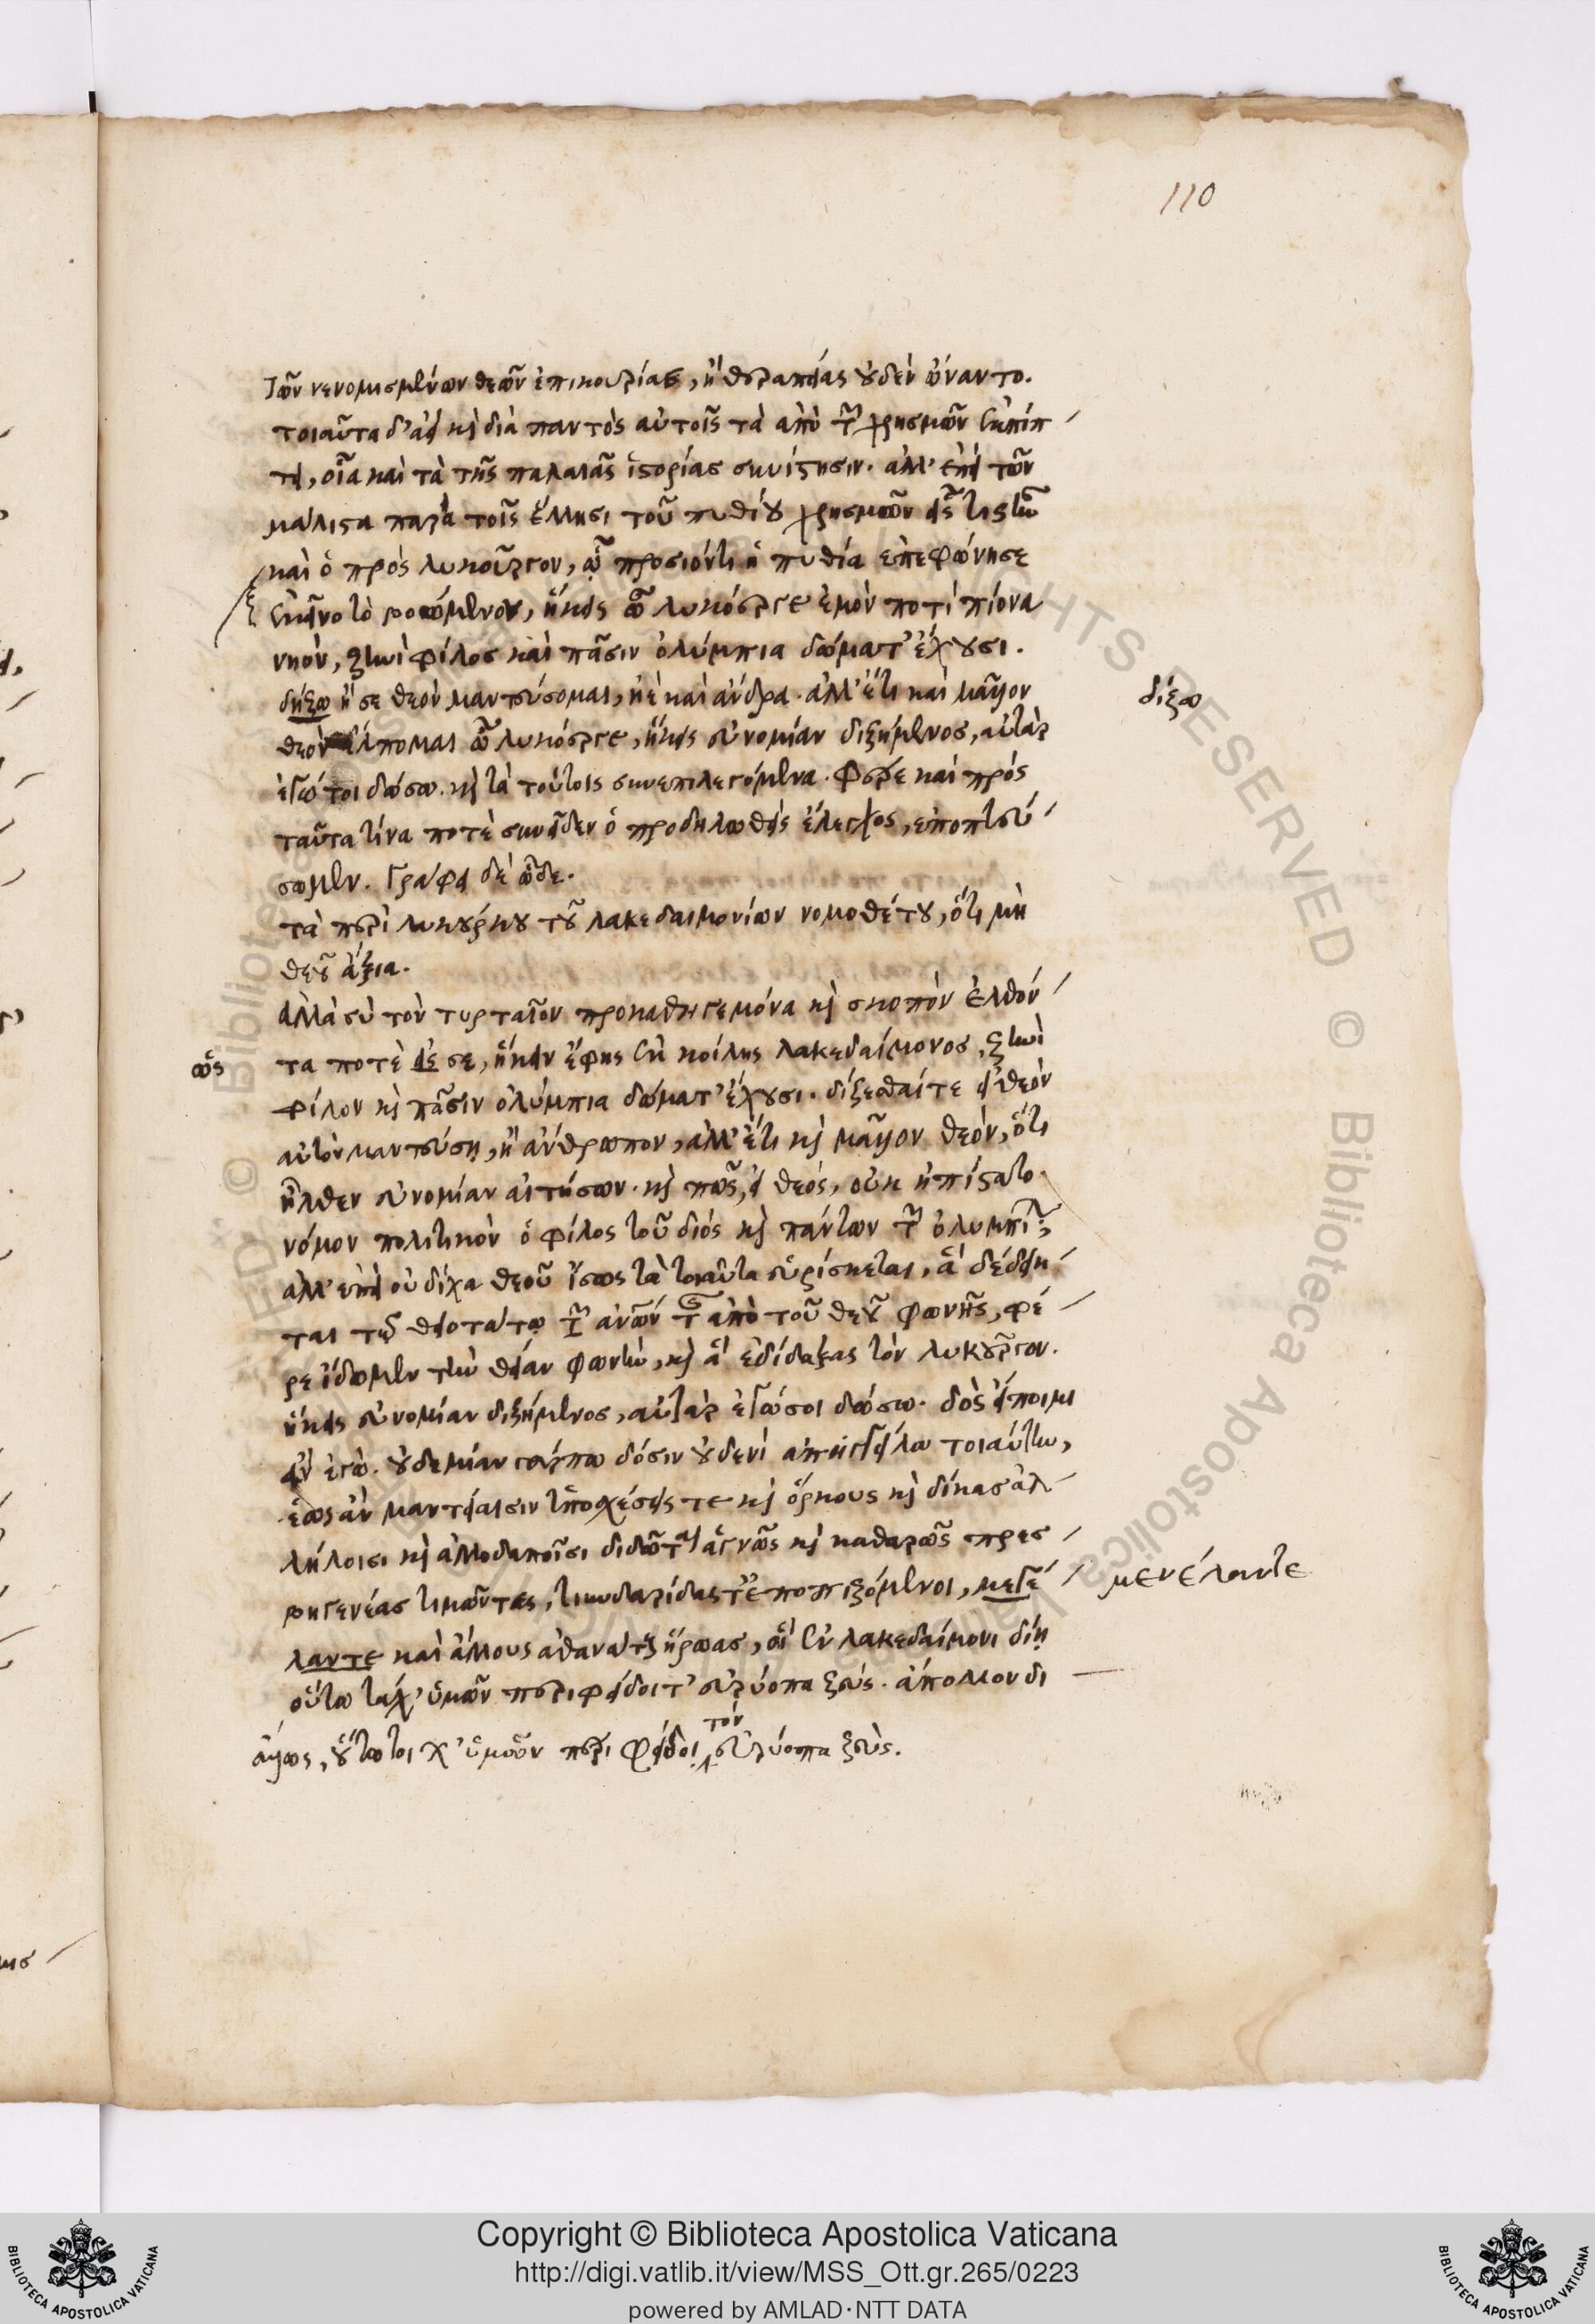 110
τῶν νενομισμένων θεῶν ἐπικουρίας, ἢ θεραπείας οὐδὲν ὤναντο.
τοιαῦτα δ' ἀεὶ καὶ διὰ παντὸς αὐτοῖς τὰ ἀπὸ τῶν χρησμῶν ἐκπίπ
τει, οἷα καὶ τὰ τῆς παλαιᾶς ἱστορίας συνίστησιν. ἀλλ' ἐπεὶ τῶν
μάλιστα παρὰ τοῖς ἕλλησι τοῦ πυθίου χρησμῶν εἷς τις ἦν
καὶ ὁ πρὸς λυκοῦργον, ᾧ προσιόντι ἡ πυθία ἐπεφώνησε
ἐκεῖνο τὸ βοώμενον, ἥκεις ὦ λυκόοργε ἐμὸν ποτὶ πίονα
νηὸν, ζηνὶ φίλος καὶ πᾶσιν ὀλύμπια δώματ' ἔχουσι.
δήξω ἤ σε θεὸν μαντεύσομαι, ἠὲ καὶ ἄνδρα. ἀλλ' ἔτι καὶ μᾶλλον
δίζω
θεὸν ἔλπομαι ὦ λυκόοργε, ἥκεις εὐνομίαν διζήμενος, αὐτὰρ
ἐγώ τοι δώσω. καὶ τὰ τούτοις συνεπιλεγόμενα. φέρε καὶ πρὸς
ταῦτα τίνα ποτὲ συνεῖδεν ὁ προδηλωθεὶς ἔλεγχος, ἐποπτεύ
σωμεν. Γράφει δὲ ὧδε.
τὰ περὶ λυκούργου τοῦ λακεδαιμονίων νομοθέτου, ὅτι μὴ
θεοῦ ἄξια.
ἀλλὰ σὺ τὸν τυρταῖον προκαθηγεμόνα καὶ σκοπὸν ἐλθόν
ὡς
τα ποτὲ εἴς σε, ἥκειν ἔφης ἐκ κοίλης λακεδαίμονος, ζηνὶ
φίλον καὶ πᾶσιν ὀλύμπια δώματ' ἔχουσι. δίζεσθαί τε εἰ θεὸν
αὐτὸν μαντεύσῃ, ἢ ἄνθρωπον, ἀλλ' ἔτι καὶ μᾶλλον θεὸν, ὅτι
ἦλθεν εὐνομίαν αἰτήσων. καὶ πῶς, εἰ θεός, οὐκ ἠπίστατο
νόμον πολιτικὸν ὁ φίλος τοῦ διός καὶ πάντων τῶν ὀλυμπίων;
ἀλλ' ἐπεὶ οὐ δίχα θεοῦ ἴσως τὰ τοιαῦτα εὑρίσκεται, ἃ δέδεικ
ται τῷ θειοτάτῳ τῶν ἀνθρώπων τούτων ἀπὸ τοῦ θεοῦ φωνῆς, φέ
ρε ἴδωμεν τὴν θείαν φωνὴν, καὶ ἃ ἐδίδαξας τὸν λυκοῦργον.
ἥκεις εὐνομίαν διζήμενος, αὐτὰρ ἐγώ σοι δώσω. δὸς εἴποιμι
ἂν ἐγὼ. οὐδεμίαν γάρ πω δόσιν οὐδενὶ ἐπηγγείλω τοιαύτην,
ἕως ἂν μαντείαισιν ὑποσχέσεις τε καὶ ὅρκους καὶ δίκας ἀλ
λήλοισι καὶ ἀλλοδαποῖσι διδῶται ἁγνῶς καὶ καθαρῶς πρεσ
βηγενέας τιμῶντες, τυνδαρίδας τ' ἐποπιζόμενοι, μεγε
μενέλαντε
λαντε καὶ ἄλλους ἀθανάτους ἥρωας, οἳ ἐν λακεδαίμονι δίῃ
οὕτω τάχ' ὑμῶν περιφείδοιτ' εὐρύοπα ζεύς. ἀπόλλον δι
ἄλλως, οὕτω τοι χ' ὑμῶν περιφείδοι τὸν εὐρύοπα ζεὺς.
Copyright © Biblioteca Apostolica Vaticana
http://digi.vatlib.it/view/MSS_Ott.gr.265/0223
powered by AMLAD·NTT DATA